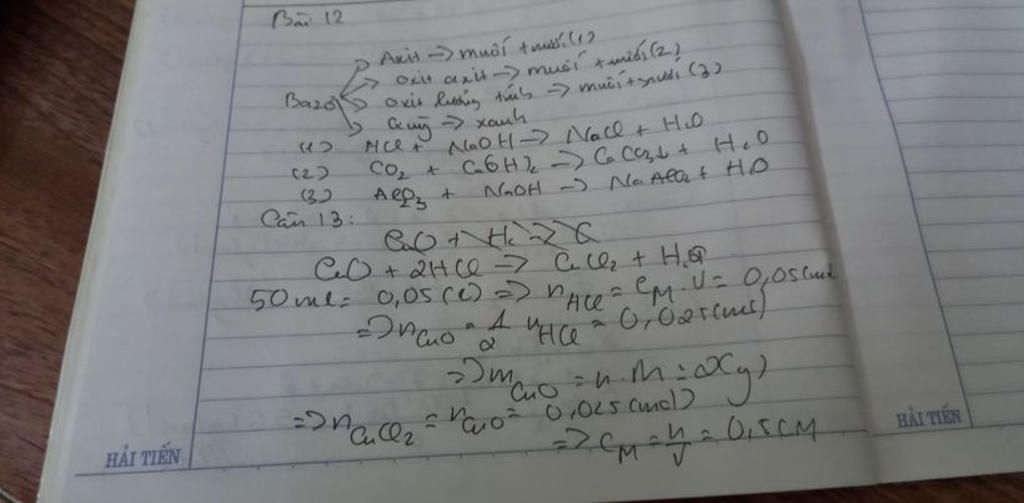 Bài 12
Axit → muối + nước (1)
oxit axit → muối + nước (2)
Bazơ
oxit lưỡng tính → muối + nước (3)
Quỳ → xanh
(1) HCl + NaOH → NaCl + H₂O
(2) CO₂ + Ca(OH)₂ → CaCO₃↓ + H₂O
(3) Al₂O₃ + NaOH → NaAlO₂ + H₂O
Câu 13:
CuO + 2HCl → CuCl₂ + H₂O
50ml = 0,05(l) => nHCl = CM.V = 0,05(mol
=> nCuO = 1/2 nHCl = 0,025(mol)
=> mCuO = n.M = 2(g)
=> nCuCl₂ = nCuO = 0,025(mol)
=> CM = n/V = 0,5(M
HẢI TIẾN
HẢI TIẾN